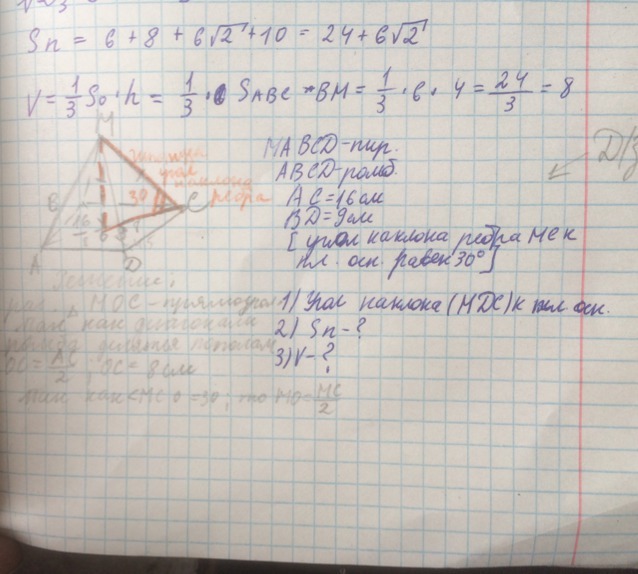 Sп = 6 + 8 + 6√2 + 10 = 24 + 6√2
V = 1/3 So · h = 1/3 · SABC · BM = 1/3 · 6 · 4 = 24/3 = 8
M
угол
наклона
ребра
30
B
C
A
D
MABCD - пир.
ABCD - ромб.
AC = 16 см
BD = 9 см
[ угол наклона ребра MC к
пл. осн. равен 30° ]
1) Угол наклона (MDC) к пл. осн.
2) Sп - ?
3) V - ?
Д/з
Решение.
MOC - прямоугол
так как диагонали
ромба делятся пополам
= AC/2 ; OC = 8 см
так как <MCO = 30 ; то MO = MC/2